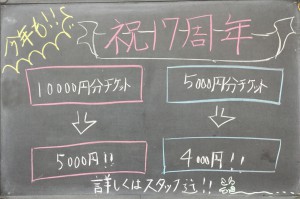 今年も!!!
祝17周年
10000円分チケット
5000円分チケット
5000円!!
4000円!!
詳しくはスタッフ迄!!